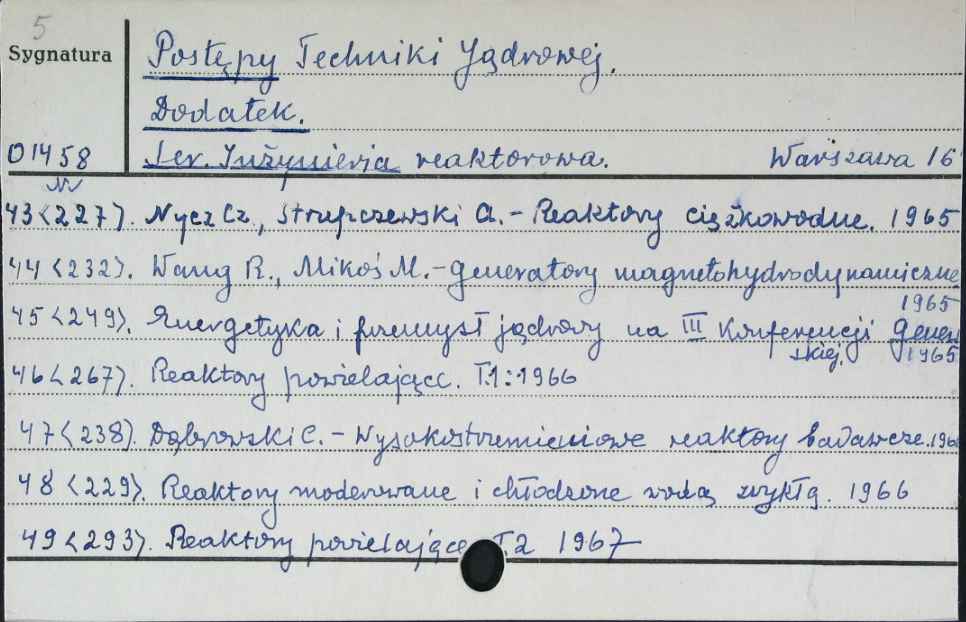 5
Sygnatura
Postępy Techniki Jądrowej.
Dodatek.
01458 Ser. Inżynieria reaktorowa. Warszawa 16
43 <227>. Nycz Cz., Strupczewski A. - Reaktory ciężkowodne. 1965
44 <232>. Wang R., Mikoś M. - Generatory magnetohydrodynamiczne
1965
45 <249>. Energetyka i przemysł jądrowy na III Konferencji Genew
skiej. 1965
46 <267>. Reaktory powielające. T.1: 1966
47 <238>. Dąbrowski C. - Wysokostrumieniowe reaktory badawcze. 196
48 <229>. Reaktory moderowane i chłodzone wodą zwykłą. 1966
49 <293>. Reaktory powielające T.2 1967